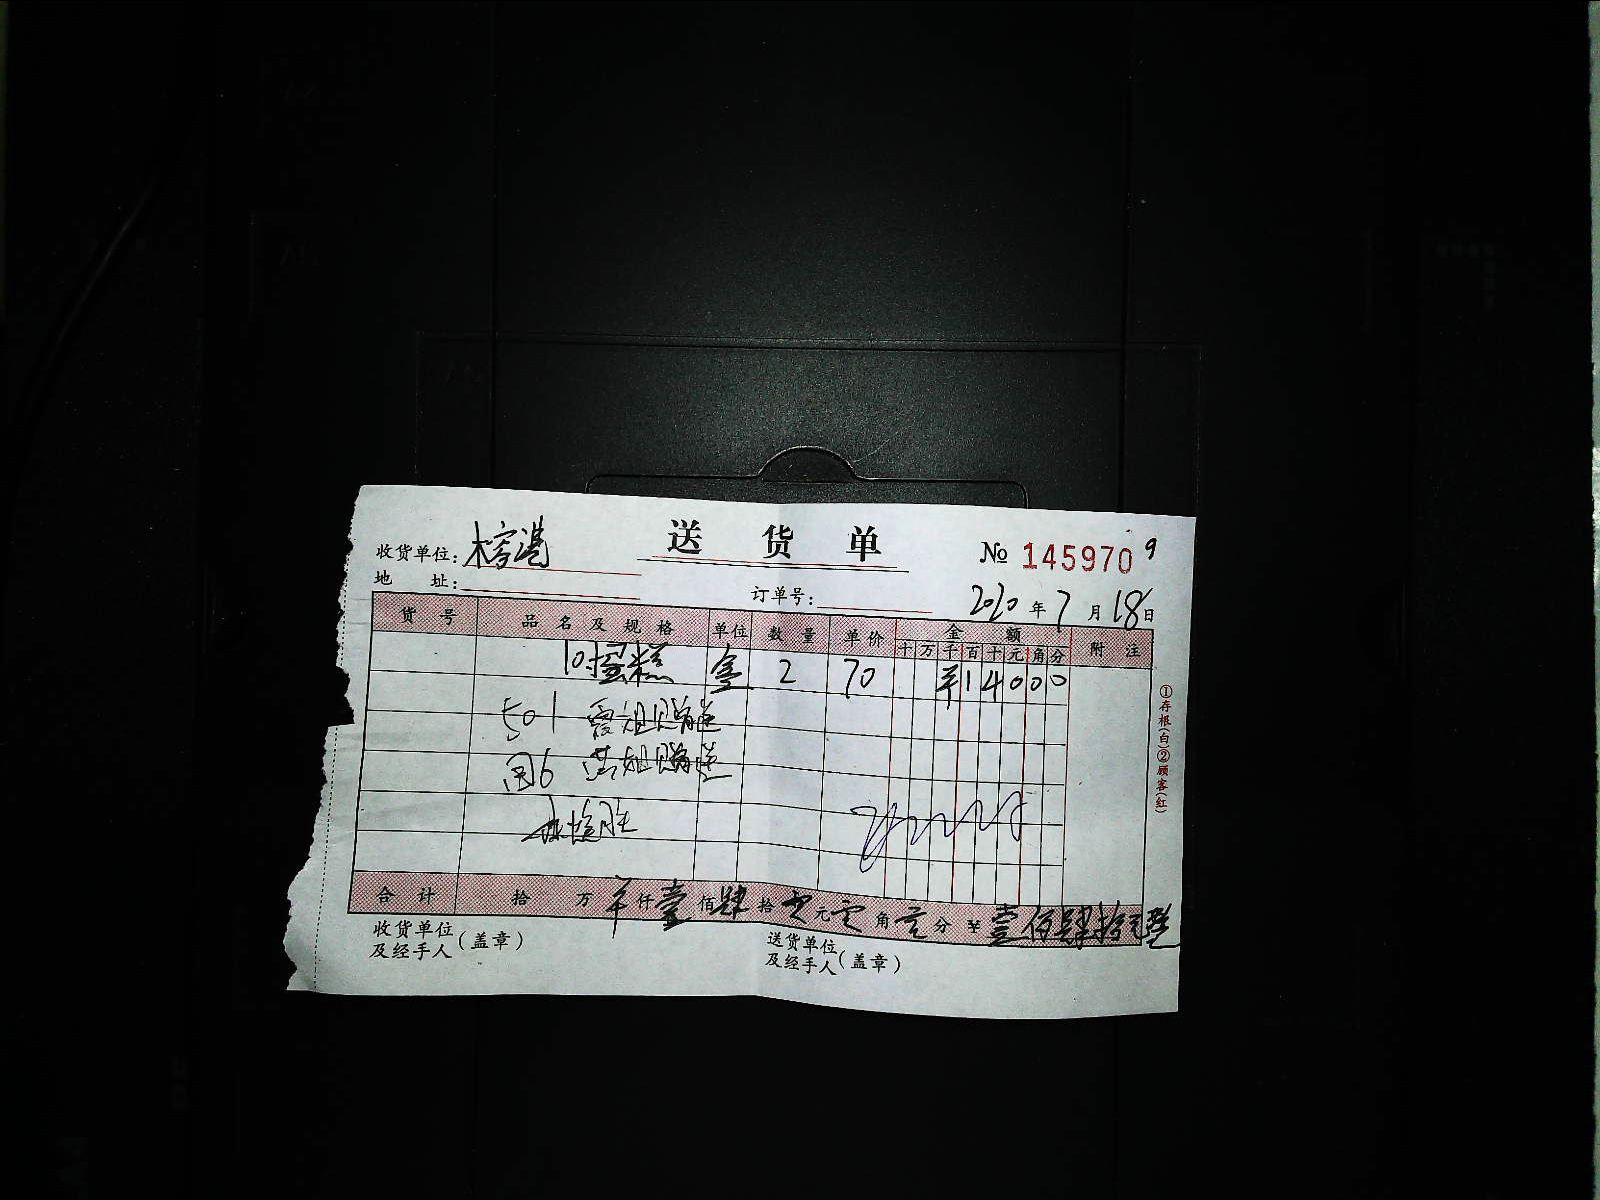 送货单
收货单位:
№ 1459709
地 址:
订单号:
2020年7月18日
货号 品名及规格 单位 数量 单价 金额 附注
十万千百十元角分
10寸蛋糕 盒 2 70 ¥14000
501 霞姐赠送
国6 芸姐赠送
合计 拾 万 ¥ 仟 壹 佰 肆 拾 零 元 零 角 零 分 ¥ 壹佰肆拾元整
收货单位及经手人(盖章)
送货单位及经手人(盖章)
①存根(白)②顾客(红)